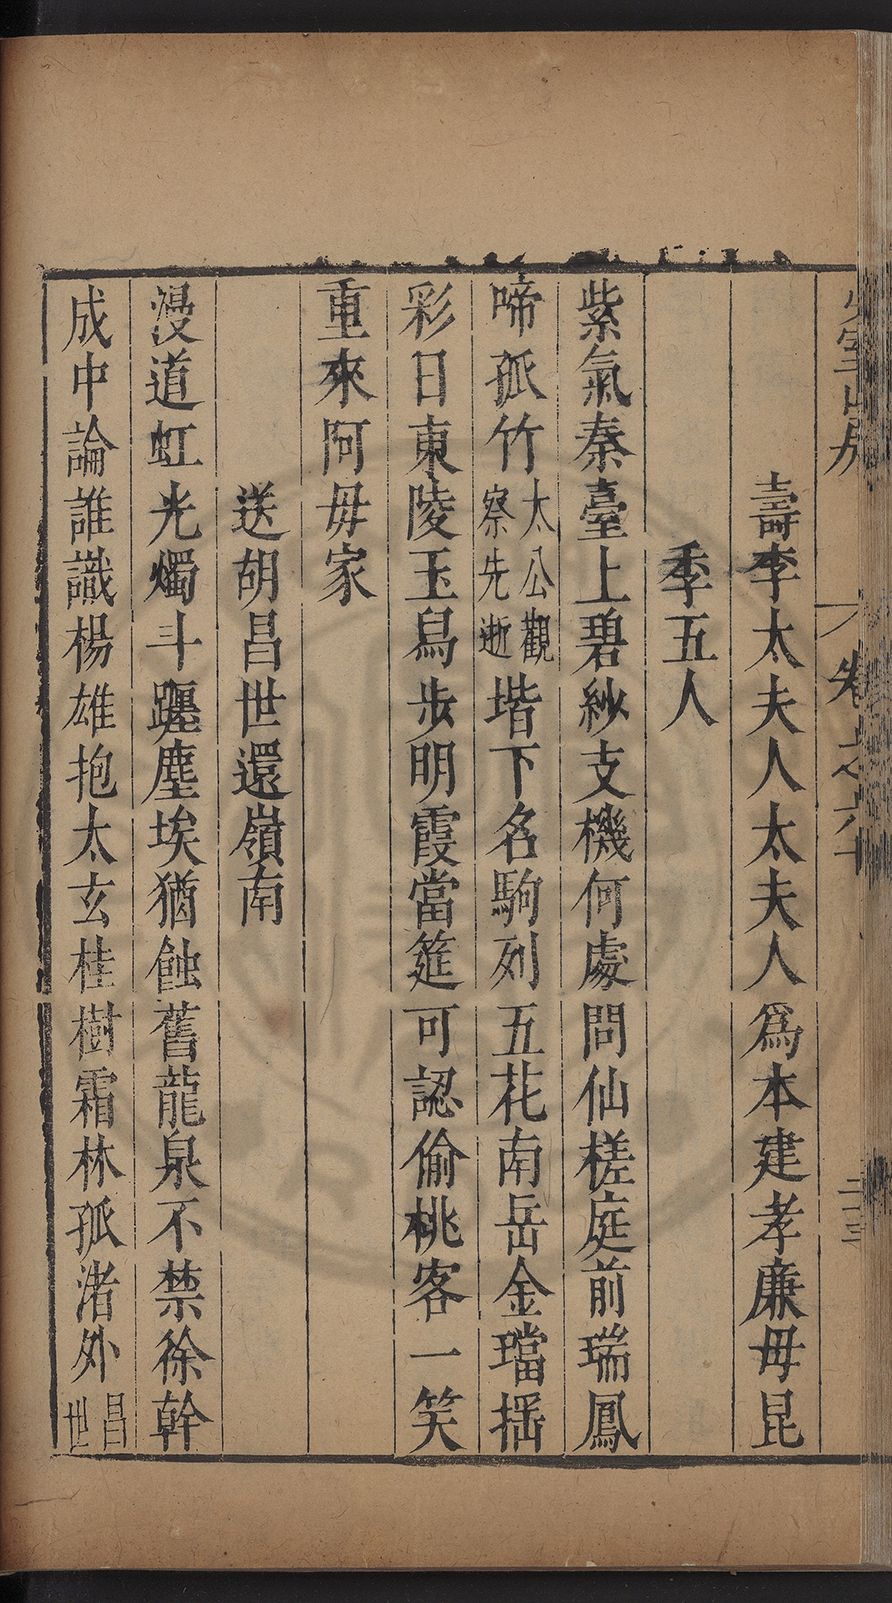 少室山房 卷之六十 二十三
壽李太夫人太夫人爲本建孝廉毋昆
季五人
紫氣秦臺上碧紗支機何處問仙槎庭前瑞鳳
啼孤竹太公觀察先逝堦下名駒列五花南岳金璫揺
彩日東陵玉舄步明霞當筵可認偷桃客一笑
重來阿毋家
送胡昌世還嶺南
漫道虹光燭斗躔塵埃猶蝕舊龍泉不禁徐幹
成中論誰識楊雄抱太玄桂樹霜林孤渚外昌世